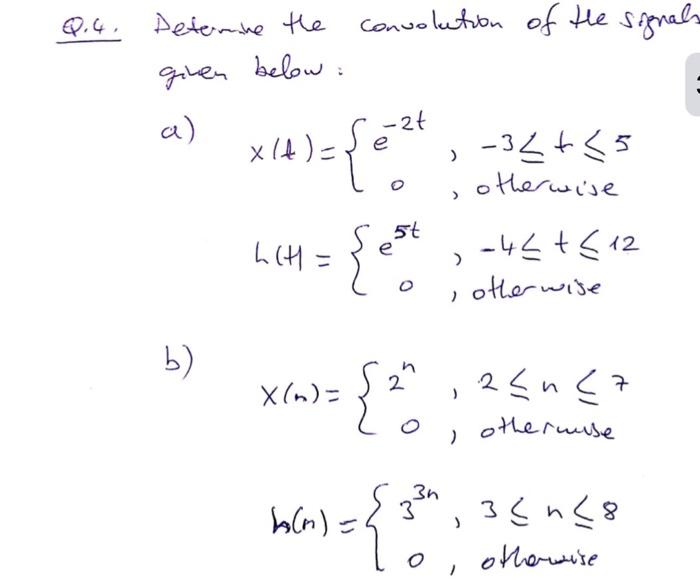 Q.4. Determine the convolution of the signals
given below:
a)
x(t) = { e^-2t , -3 ≤ t ≤ 5
0 , otherwise
h(t) = { e^5t , -4 ≤ t ≤ 12
0 , otherwise
b)
x(n) = { 2^n , 2 ≤ n ≤ 7
0 , otherwise
h(n) = { 3^3n , 3 ≤ n ≤ 8
0 , otherwise